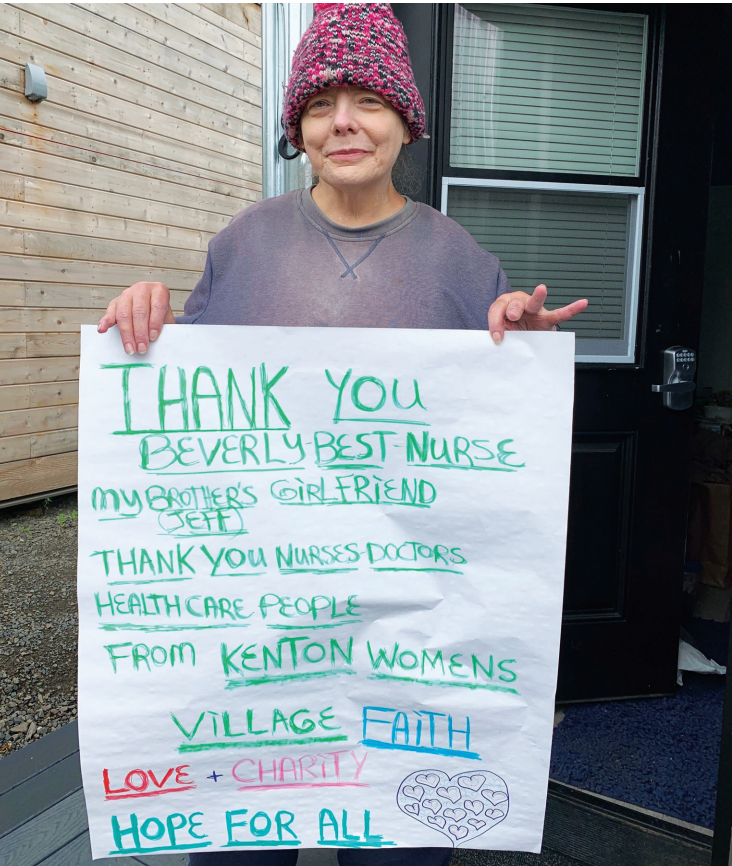 THANK YOU
BEVERLY-BEST-NURSE
MY BROTHER'S GIRLFRIEND
(JEFF)
THANK YOU NURSES-DOCTORS
HEALTH CARE PEOPLE
FROM KENTON WOMENS
VILLAGE FAITH
LOVE + CHARITY
HOPE FOR ALL